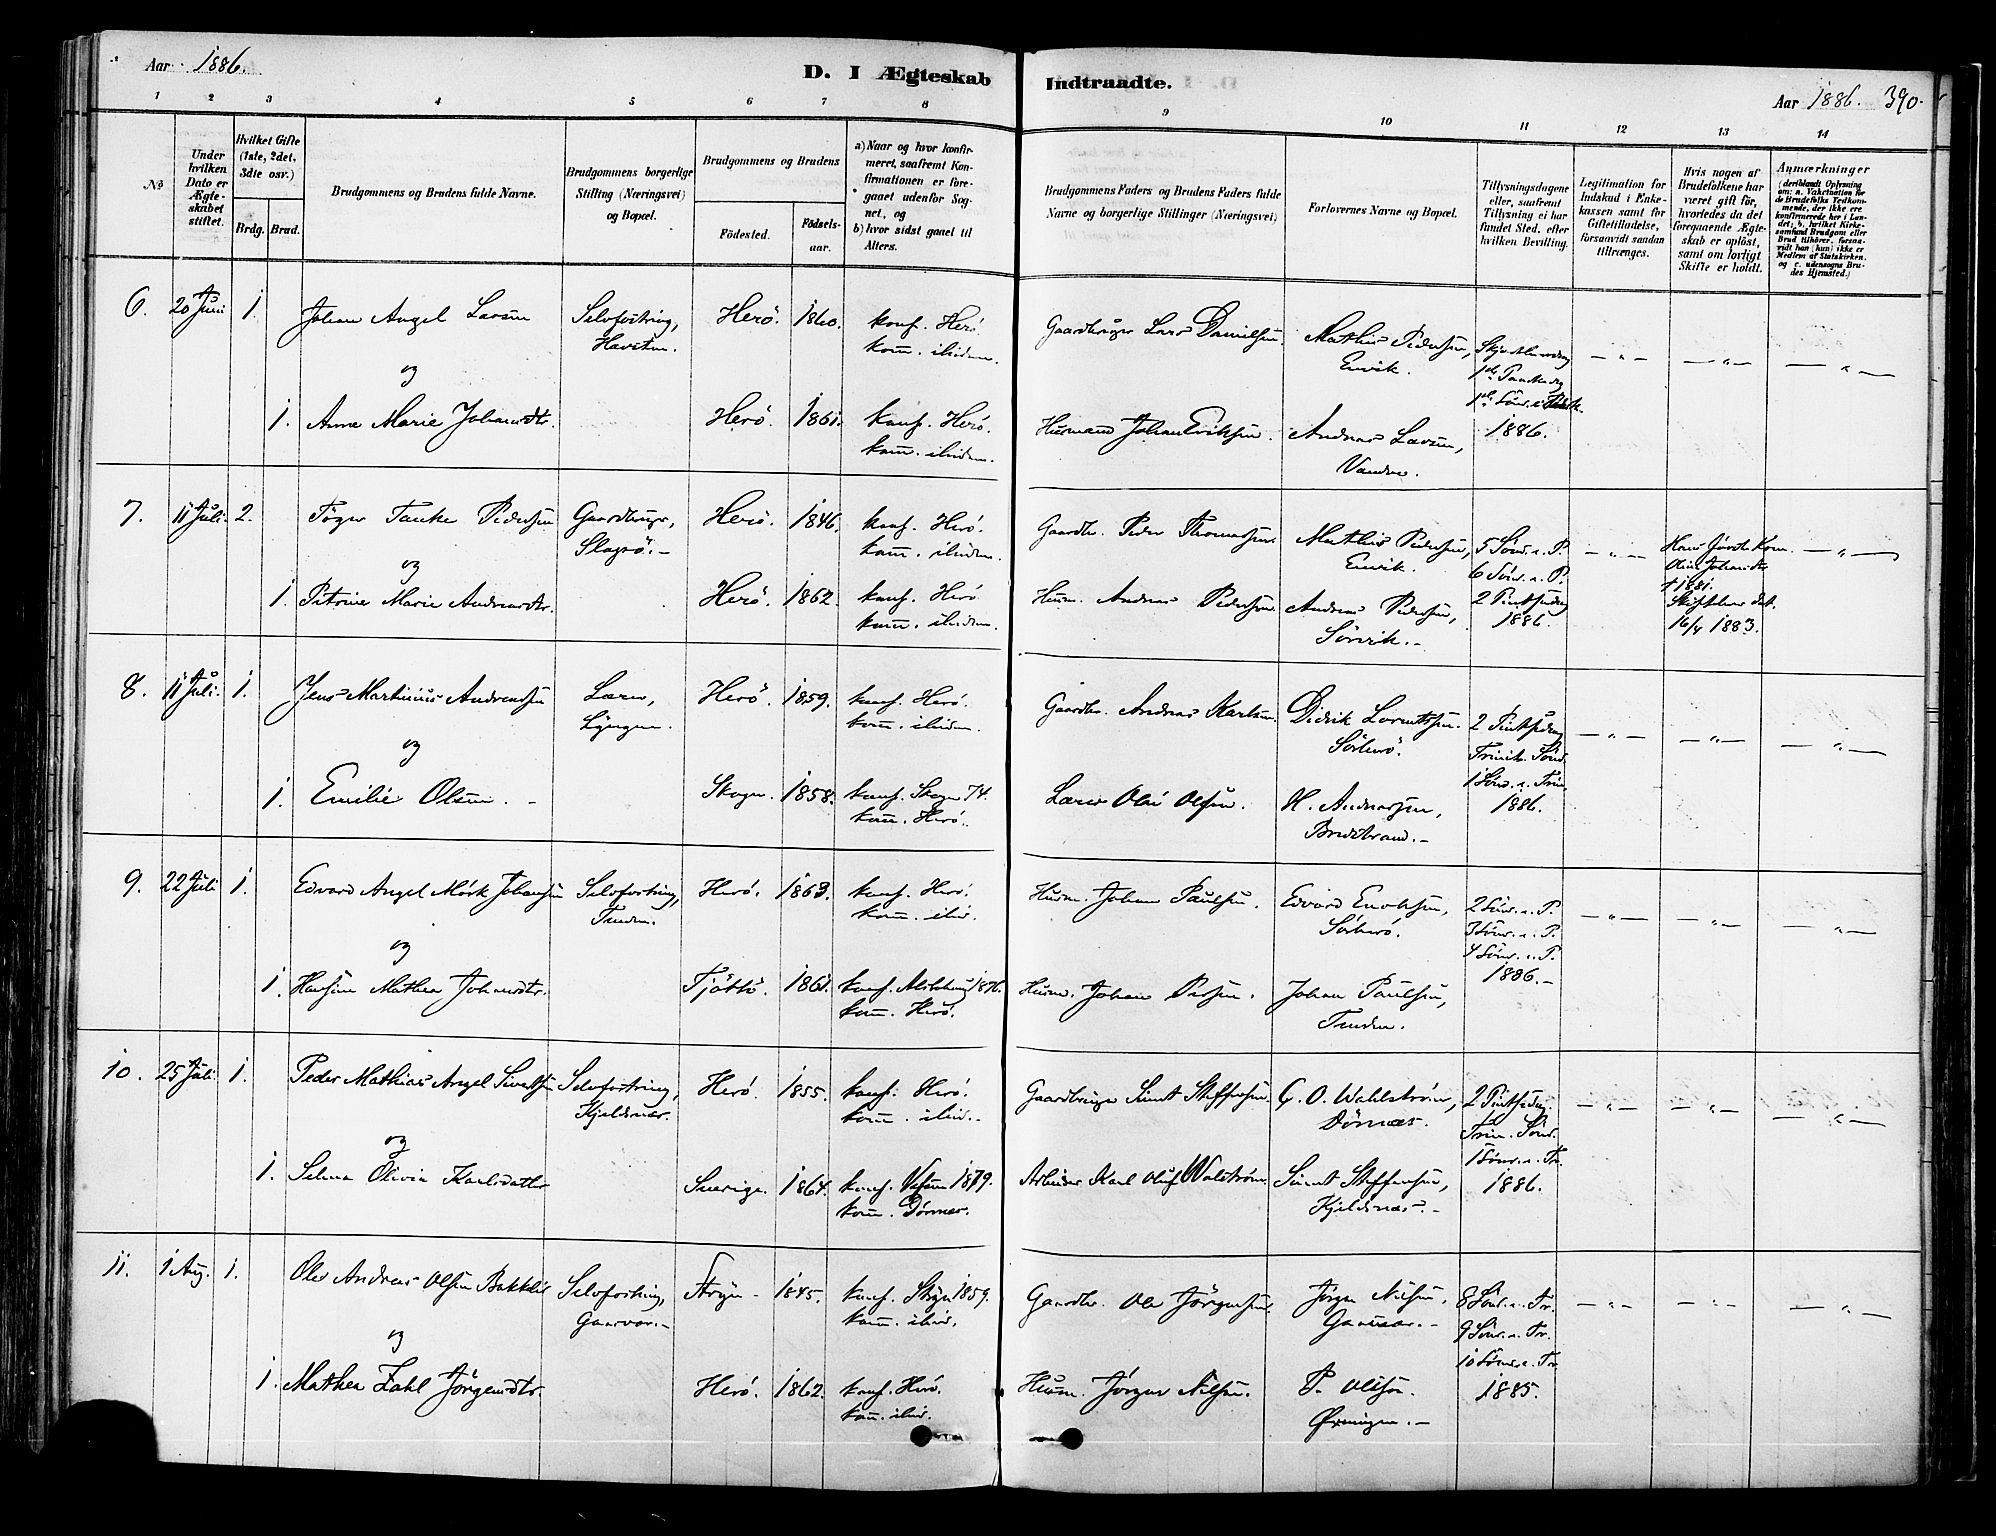 Aar 1886.
D. I Ægteskab Indtraadte.
Aar 1886. 390.
1 2 3 4 5 6 7 8 9 10 11 12 13 14
No
Under hvilken Dato er Ægteskabet stiftet.
Hvilket Gifte (1ste, 2det, 3die osv.)
Brdg. Brud.
Brudgommens og Brudens fulde Navne.
Brudgommens borgerlige Stilling (Næringsvei) og Bopæl.
Brudgommens og Brudens
Fødested. Fødselsaar.
a) Naar og hvor konfirmeret, saafremt Konfirmationen er foregaaet udenfor Sognet, og
b) hvor sidst gaaet til Alters.
Brudgommens Faders og Brudens Faders fulde Navne og borgerlige Stillinger (Næringsvei)
Forlovernes Navne og Bopæl.
Tillysningsdagene eller, saafremt Tillysning ei har fundet Sted, efter hvilken Bevilling.
Legitimation for Indskud i Enkekassen samt for Giftetilladelse, forsaavidt saadan tiltrænges.
Hvis nogen af Brudefolkene har været gift før, hvorledes da det foregaaende Ægteskab er opløst, samt om lovligt Skifte er holdt.
Anmærkninger
6. 20 Juni 1. Johan Angel Larsen
Selvfostring, Havsten.
Herö. 1860. konf. Herö
kom. ibidem.
Gaardbruger Lars Danielsen
Mathis Pedersen, Envik.
Skjærthorsdag
1ste Paaskedag
1886.
og
1. Anne Marie Johansdtr.
Herö. 1861. konf. Herö.
kom. ibidem.
Husmand Johan Eriksen.
Andreas Larsen,
7. 11 Juli. 2. Töger Tanke Pedersen
Gaardbruger, Slapsö.-
Herö. 1846. konf. Herö.
kom. ibidem.
Gaardbr. Peder Thomassen
Mathis Pedersen, Envik.
5 Sönd. e. P.
6 Sönd. e. P.
2 Pintsedag
1886.
† 1881.
16/4 1883.
og
1. Petrine Marie Andreasdtr.
Herö. 1862. konf. Herö
kom. ibidem.
Husm. Andreas Pedersen
Andreas Pedersen, Sörvik.-
8. 11 Juli. 1. Jens Martinius Andreassen
Lærer, Lyngen.
Herö. 1859. konf. Herö.
kom. ibidem.
Gaardbr. Andreas Karlsen.
Didrik Lorentsen. Sörherö.
2 Pintsedag
Trinit. Sönd.
1 Sönd. e. Trin.
1886.
og
1. Emilie Olsen.
Skogn. 1858. konf. Skogn 74.
kom. Herö.
Lærer Ole Olsen.
H. Andreassen, Bredstrand.-
9. 22 Juli 1. Edvard Angel Mörk Johansen
Selvfostring, Tenden.
Herö. 1863. konf. Herö.
kom. ibid.
Husm. Johan Paulsen.
Edvard Enoksen, Sörherö.
2 Sönd. e. P.
3 Sönd. e. P.
4 Sönd. e. P.
1886.-
og
1. Hansine Mathea Johansdtr.
Tjöttö. 1861. konf. Alstahaug 1876.
kom. Herö.
Husm. Johan
Johan Paulsen, Tenden.
10. 25 Juli 1. Peder Mathias Angel Sivertsen
Selvfostring, Kjeldsnæs.
Herö. 1855. konf. Herö.
kom. ibid.-
Gaardbruger Sivert Steffensen
C. O. Wahlström, Dörnæs.
2 Pintsedag
Trin. Sönd.
1 Sönd. e. Tr.
1886.
og
1. Selma Olivia Karlsdatter
Sverige. 1864. konf. Vefsen 1879.
kom. Dönnes.
Arbeider Karl Oluf Walström
Sivert Steffensen, Kjeldsnæs.-
11. 1 Aug. 1. Ole Andreas Olsen Bakklie
Selvfostring, Gaasvær.-
Stryn 1845. konf. Stryn 1859.
kom. ibid.
Gaardbr. Ole Jörgensen.
Jörgen Nilsen, Gaasvær.-
8 Sönd. e. Tr.
9 Sönd. e. Tr.
10 Sönd. e. Tr.
1885.
og
1. Mathea Zahl Jörgensdtr.
Herö. 1862. konf. Herö.
kom. ibid.
Husm. Jörgen Nilsen.
P. Olsen.